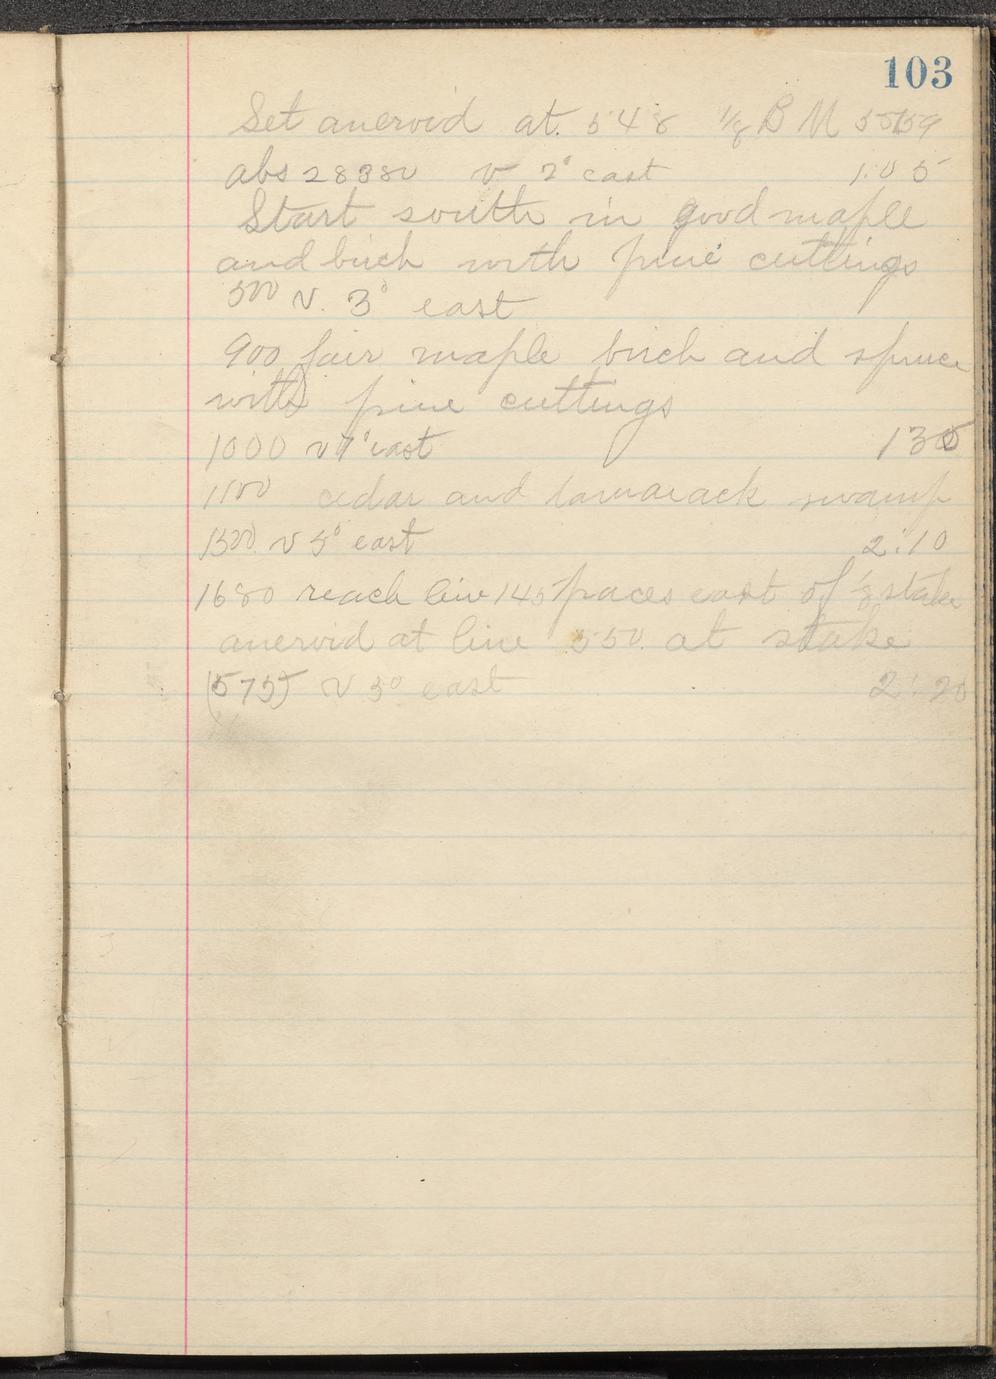 103
Set aneroid at. 548 1/8 B M
abs 28380 v 2° east 1:05
Start south in good maple
and birch with pine cuttings
500 v. 3° east
900 fair maple birch and spruce
with pine cuttings
1000 v 1° east 130
1100 cedar and tamarack swamp
1500 v 5° east 2:10
1680 reach line 145 paces east of 1/8 stake
aneroid at line 550 at stake
(575) v 3° east 2:20